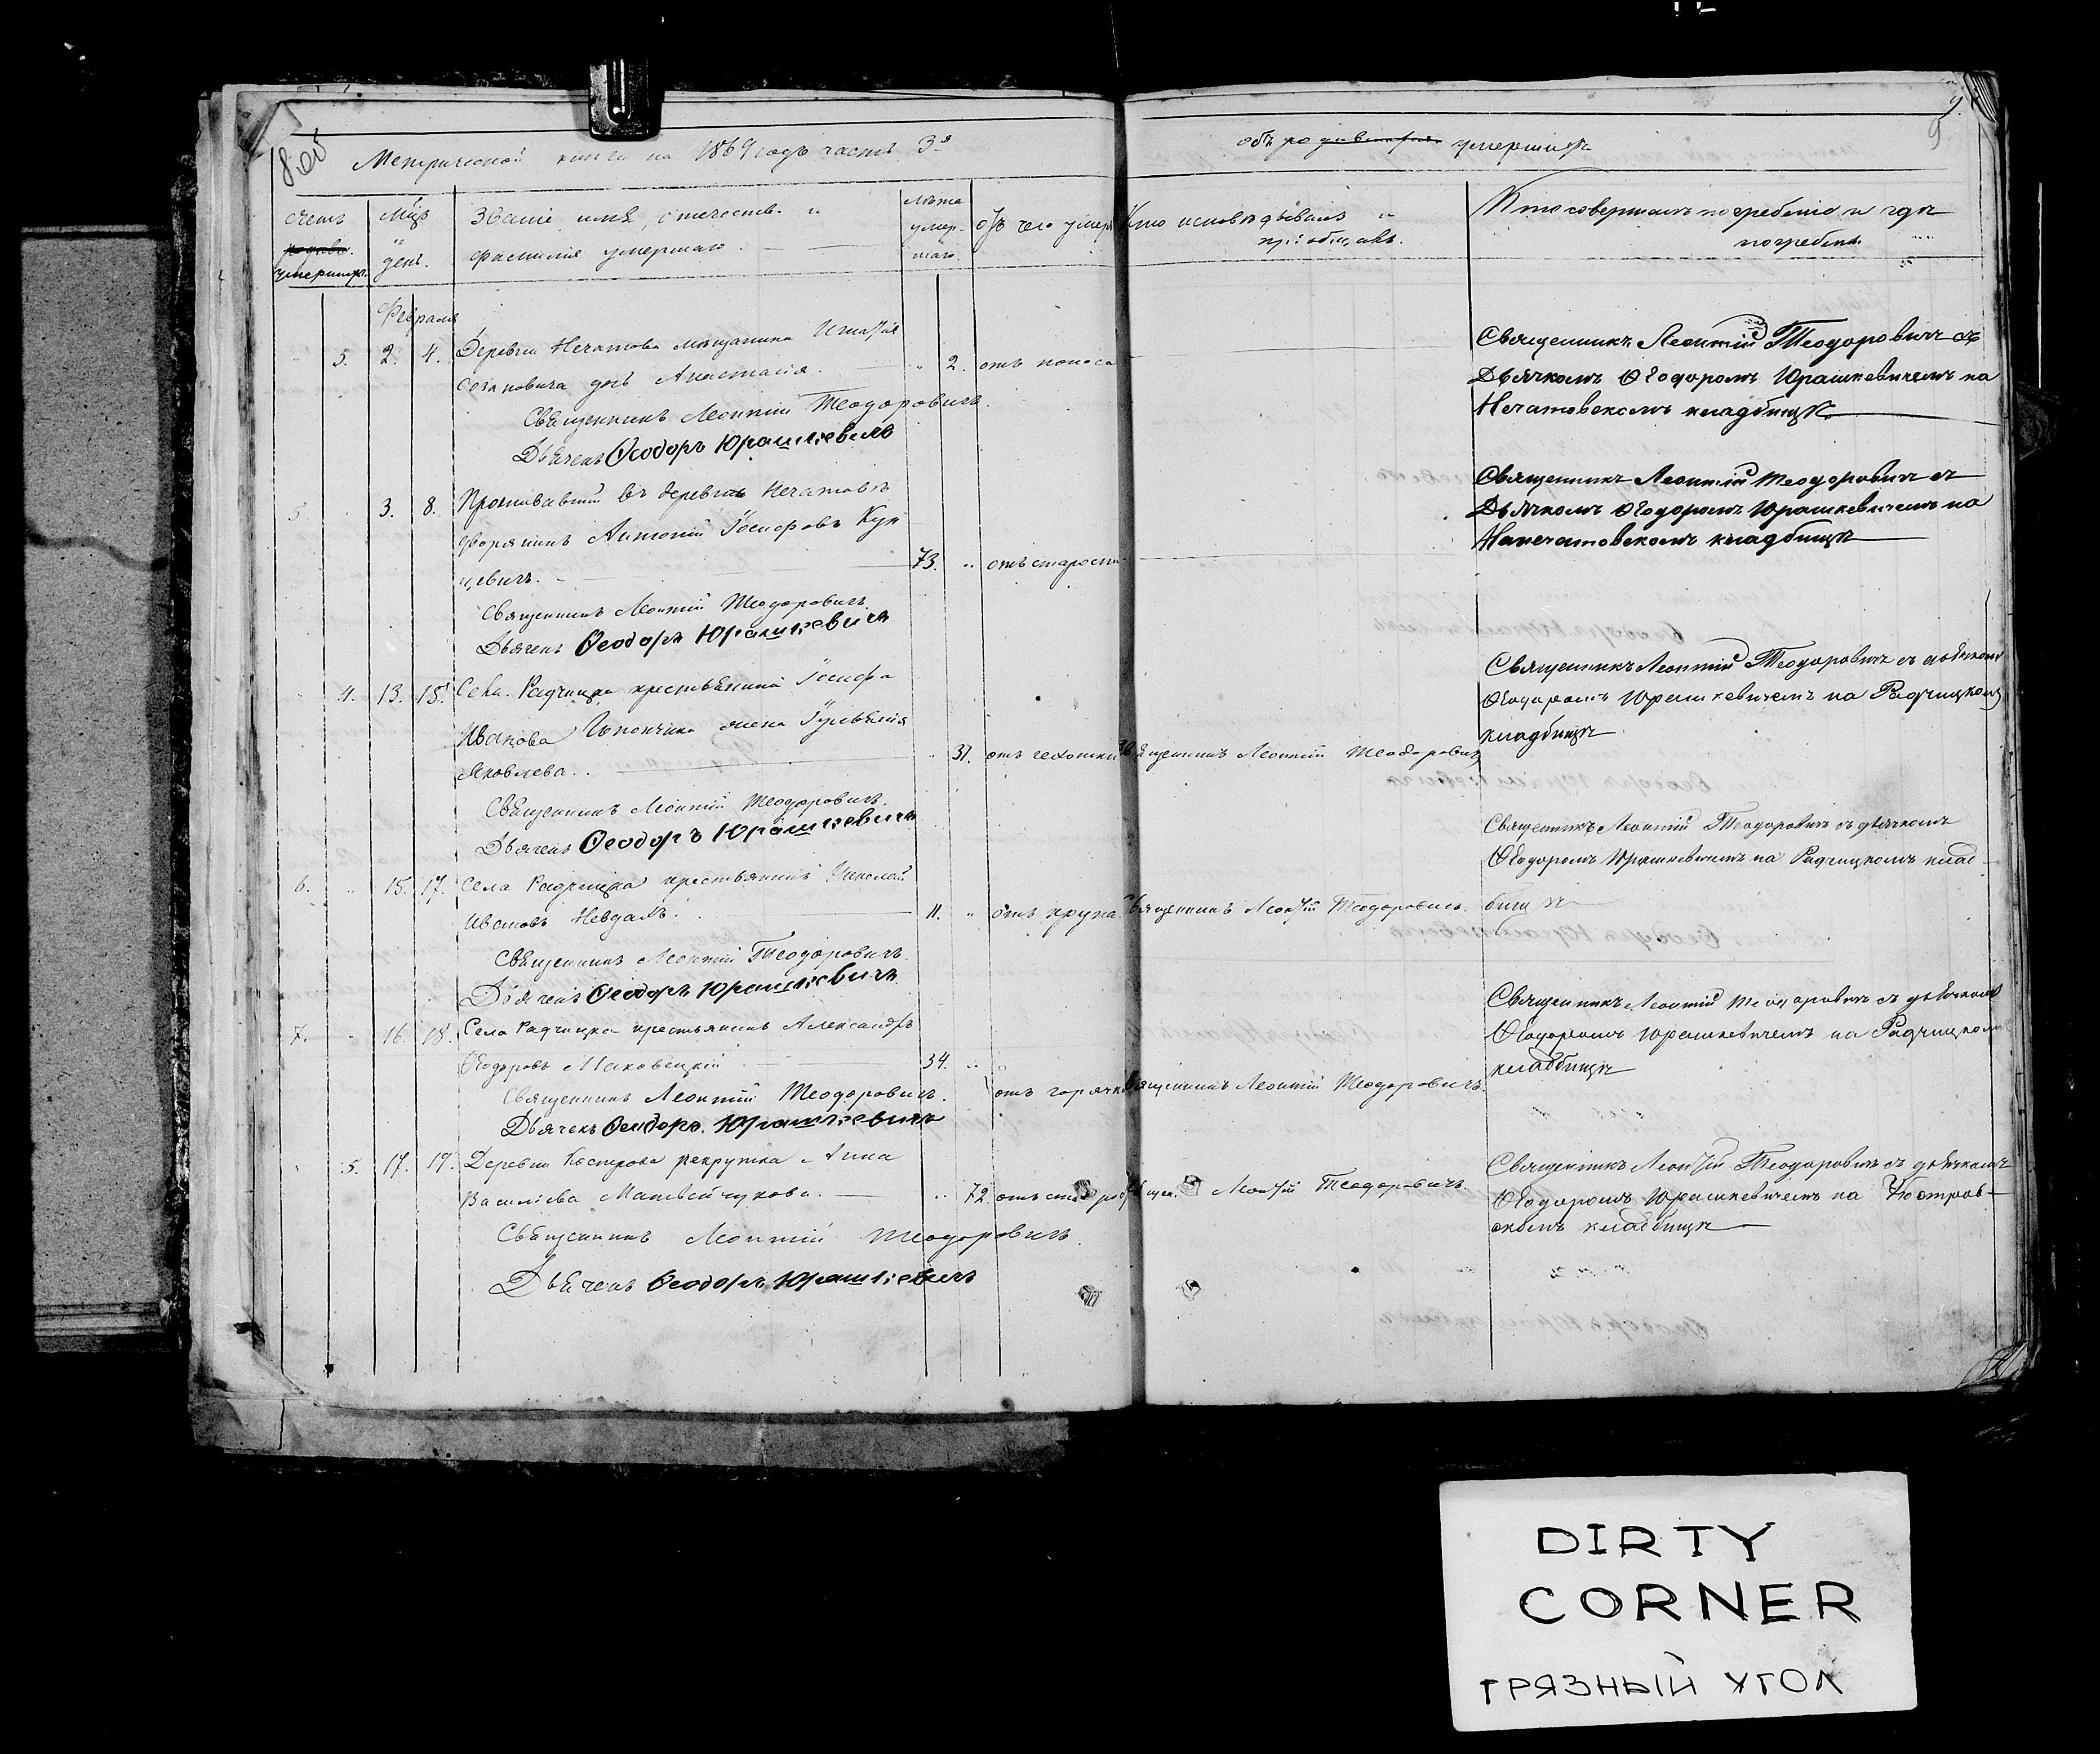 Метрической книги на 1869 годъ часть 3я
объ умершихъ
9
счетъ
умершихъ.
Мцъ
и
день.
Званіе имя, отечество и
фамилія умершаго.
лѣта
умер-
шаго.
отъ чего умеръ
Кто исповѣдывалъ и
пріобщалъ.
Кто совершалъ погребеніе и гдѣ
погребены.
Февраля
3. 2. 4. Деревни Нечатова мѣщанина Игнатія
дочь Анастасія. 2. отъ поноса
Священникъ Леонтій Теодоровичъ
Дьячекъ Ѳеодоръ Юрашкевичъ
Священникъ Леонтій Теодоровичъ съ
Дьячкомъ Ѳеодоромъ Юрашкевичемъ на
Нечатовскомъ кладбищѣ
5 3. 8. Проживавшій въ деревнѣ Нечатовѣ
дворянинъ Антоній Іосифовъ Кун
цевичъ. 73. отъ старости
Священникъ Леонтій Теодоровичъ
Дьячекъ Ѳеодоръ Юрашкевичъ
Священникъ Леонтій Теодоровичъ съ
Дьячкомъ Ѳеодоромъ Юрашкевичемъ на
Нанечатовскомъ кладбищѣ
4. 13. 15. Села Радчицка крестьянина Іосифа
Иванова жена Іуліанія
Яковлева. 31. отъ Священникъ Леонтій Теодоровичъ
Священникъ Леонтій Теодоровичъ.
Дьячекъ Ѳеодоръ Юрашкевичъ
Священникъ Леонтій Теодоровичъ съ дьячкомъ
Ѳеодоромъ Юрашкевичемъ на Радчицкомъ
кладбищѣ
6. 15. 17. Села Радчицка крестьянинъ Николай
Ивановъ 11. отъ крупа. Священникъ Леонтій Теодоровичъ.
Священникъ Леонтій Теодоровичъ.
Дьячекъ Ѳеодоръ Юрашкевичъ
Священникъ Леонтій Теодоровичъ съ дьячкомъ
Ѳеодоромъ Юрашкевичемъ на Радчицкомъ клад-
бищѣ
7. 16. 18. Села Радчицка крестьянинъ Александръ
Ѳеодоровъ Маковецкій 34.
отъ горячки Священникъ Леонтій Теодоровичъ.
Священникъ Леонтій Теодоровичъ.
Дьячекъ Ѳеодоръ Юрашкевичъ
Священникъ Леонтій Теодоровичъ съ дьячкомъ
Ѳеодоромъ Юрашкевичемъ на Радчицкомъ
кладбищѣ
5. 17. 19. Деревни Кострова рекрутка Анна
Васильева Матвейчукова. 72. Леонтій Теодоровичъ.
Священникъ Леонтій Теодоровичъ.
Дьячекъ Ѳеодоръ Юрашкевичъ
Священникъ Леонтій Теодоровичъ съ дьячкомъ
Ѳеодоромъ Юрашкевичемъ на Костров-
скомъ кладбищѣ
DIRTY
CORNER
ГРЯЗНЫЙ УГОЛ